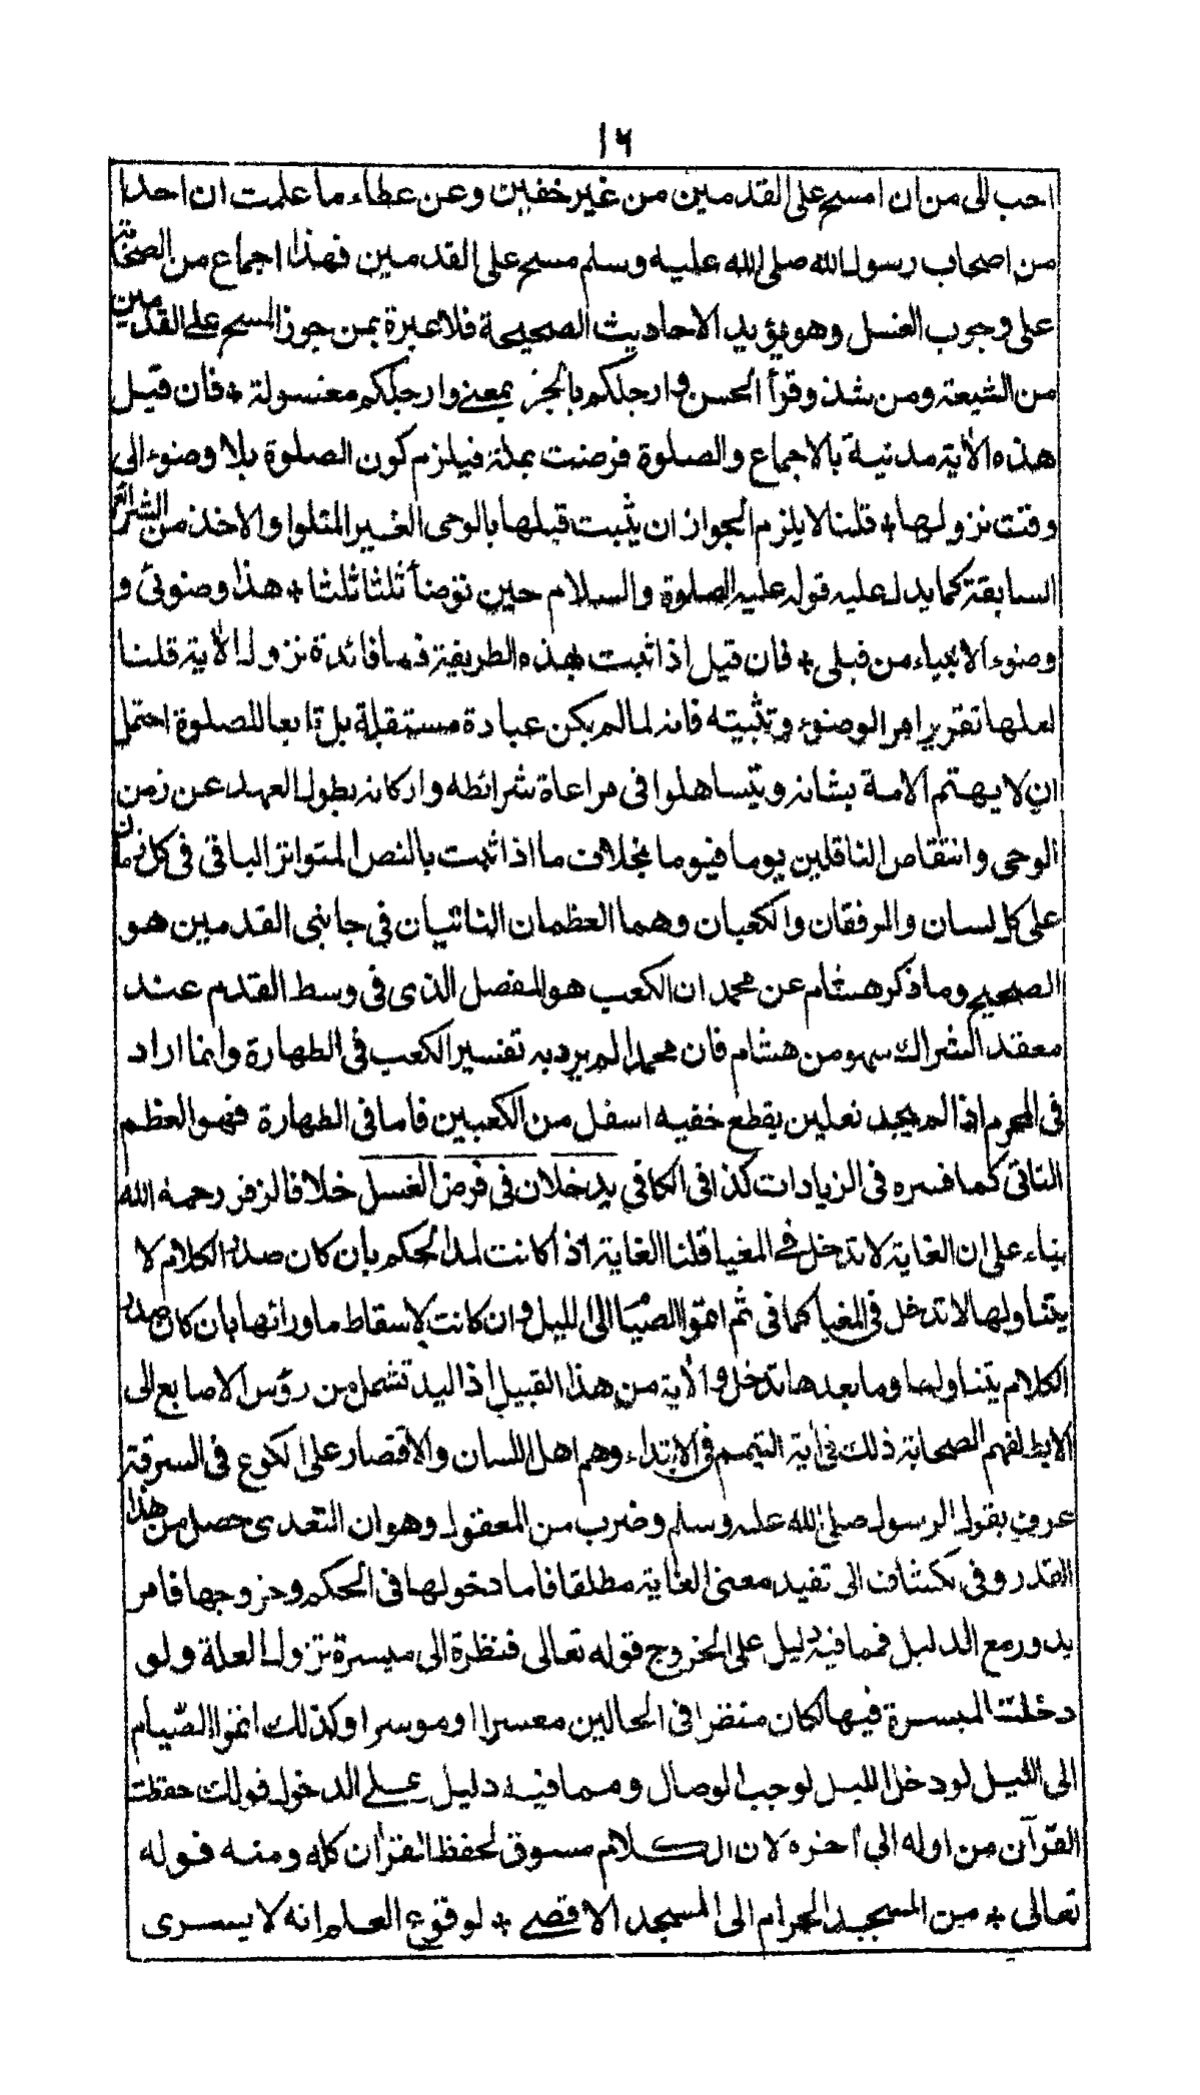 ١٦
احب الى من ان امسح على القدمين من غير خفين وعن عطاء ما علمت ان احدا
من اصحاب رسول الله صلى الله عليه وسلم مسح على القدمين فهذا اجماع من الصحابة
على وجوب الغسل وهو يؤيد الاحاديث الصحيحة فلا عبرة بمن جوز المسح على القدمين
من الشيعة ومن شذ وقرأ الحسن وارجلكم بالجر بمعنى وارجلكم مغسولة * فان قيل
هذه الآية مدنية بالاجماع والصلوة فرضت بمكة فيلزم كون الصلوة بلا وضوء الى
وقت نزولها * قلنا لا يلزم الجواز ان يثبت قبلها بالوحى الغير المتلوا والاخذ من الشرائع
السابقة كما يدل عليه قوله عليه الصلوة والسلام حين توضأ ثلثا ثلثا * هذا وضوئى و
وضوء الانبياء من قبلى * فان قيل اذا ثبت بهذه الطريقة فما فائدة نزول الآية قلنا
لعلها تقرير امر الوضوء وتثبيته فانه لما لم يكن عبادة مستقلة بل تابعا للصلوة احتمل
ان لا يهتم الامة بشانه ويتساهلوا فى مراعاة شرائطه واركانه بطول العهد عن زمن
الوحى وانتقاص الناقلين يوما فيوما بخلاف ما اذا ثبت بالنص المتواتر الباقى فى كل زمان
على كل لسان والمرفقان والكعبان وهما العظمان الناتئان فى جانبى القدمين هو
الصحيح وما ذكر هشام عن محمد ان الكعب هو المفصل الذى فى وسط القدم عند
معقد الشراك سهو من هشام فان محمدا لم يرد به تفسير الكعب فى الطهارة وانما اراد
فى المحرم اذا لم يجد نعلين يقطع خفيه اسفل من الكعبين فاما فى الطهارة فهو العظم
الناتئ كما فسره فى الزيادات كذا فى الكافي يدخلان فى فرض الغسل خلافا لزفر رحمه الله
بناء على ان الغاية لا تدخل فى المغيا قلنا الغاية اذا كانت لمد الحكم بان كان صدر الكلام لا
يتناولها لا تدخل فى المغيا كما فى ثم اتموا الصيام الى الليل وان كانت لاسقاط ما ورائها بان كان صدر
الكلام يتناولها وما بعدها تدخل والآية من هذا القبيل اذ اليد تشمل من رؤس الاصابع الى
الابط لفهم الصحابة ذلك فى آية التيمم فى الابتداء وهم اهل اللسان والاقصار على الكوع فى السرقة
عرف بقول الرسول صلى الله عليه وسلم وضرب من المعقول وهو ان التعدى حصل من هذا
القدر وفى كشاف الى تفيد معنى الغاية مطلقا فاما دخولها فى الحكم وخروجها فامر
يدور مع الدليل فمما فيه دليل على الخروج قوله تعالى فنظرة الى ميسرة تزول العلة ولو
دخلت الميسرة فيها لكان منظرا فى الحالين معسرا او موسرا وكذلك اتموا الصيام
الى الليل لو دخل الليل لوجب الوصال ومما فيه دليل على الدخول قولك حفظت
القرآن من اوله الى آخره لان الكلام مسوق لحفظ القرآن كله ومنه قوله
تعالى * من المسجد الحرام الى المسجد الاقصى * لوقوع العلم انه لا يسرى